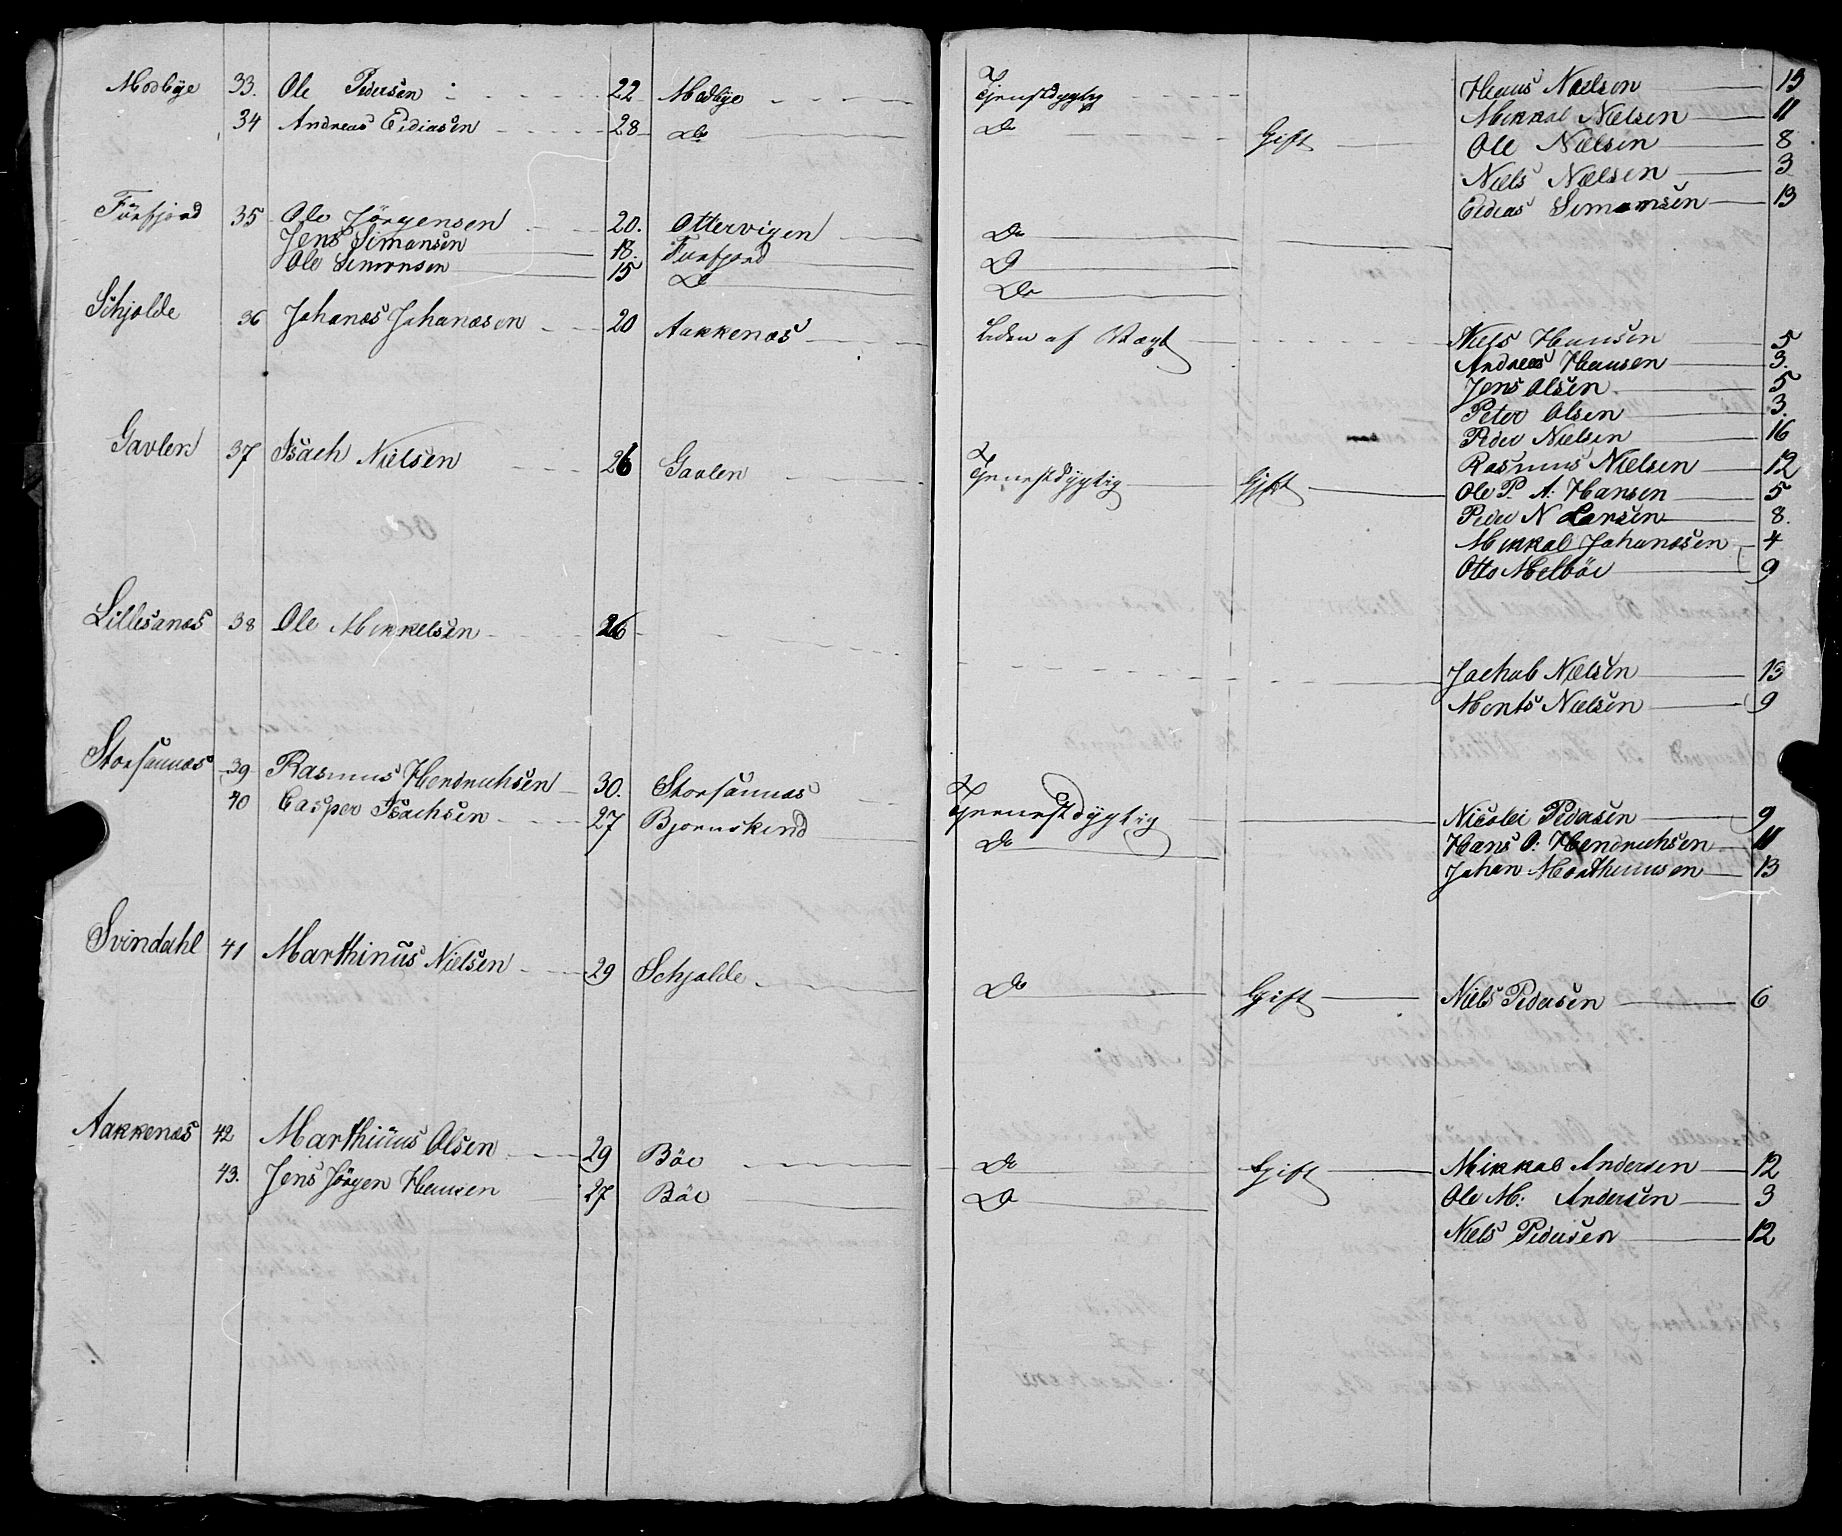 Modbye 33. Ole Pedersen 22 Modbye
34 Andreas Eidiasen 28 Do
Furfjord 35 Ole Jörgensen 20. Ottervigen
Jens Simonsen 18. Furfjord
Ole Simonsen 15 Do
Schjolde 36 Johanes Johanesen 20 Aakkenæs
Gavlen 37 Isach Nielsen 26 Gavlen
Lillesanæs 38 Ole Mikkelsen 26
Storsannæs 39 Rasmus Hendrichsen 30. Storsannæs
40 Casper Isachsen 27 Bjornskind
Svindahl 41 Marthinus Nielsen 29 Schjolde
Aakkenæs 42 Marthinus Olsen 29 Böe
43. Jens Jörgen Hansen 27 Böe
Tjenstdygtig Hans Nielsen 13
Mikkal Nielsen 11
Do Gift Ole Nielsen 8
Niels Nielsen 3
Eidias Simonsen 13
Do
Do
Do
Liden af Vægt Niels Hansen 5
Andreas Hansen 3.
Jens Olsen 5
Peter Olsen 3.
Peder Nielsen 16
Tjenestdygtig Gift Rasmus Nielsen 12
Ole P. A: Hansen 5
Peder N Larsen 8.
Mikkal Johanesen 4
Otto Melböe 9
Jachob Nielsen 13
Monts Nielsen 9
Tjenestdygtig Nicolei Pedersen 9
Do Hans O: Hendrichsen 11
Johan Morthensen 13
Do Gift Niels Pedersen 6
Do Gift Mikkal Andersen 12
Do Ole M: Andersen 3
Niels Pedersen 12